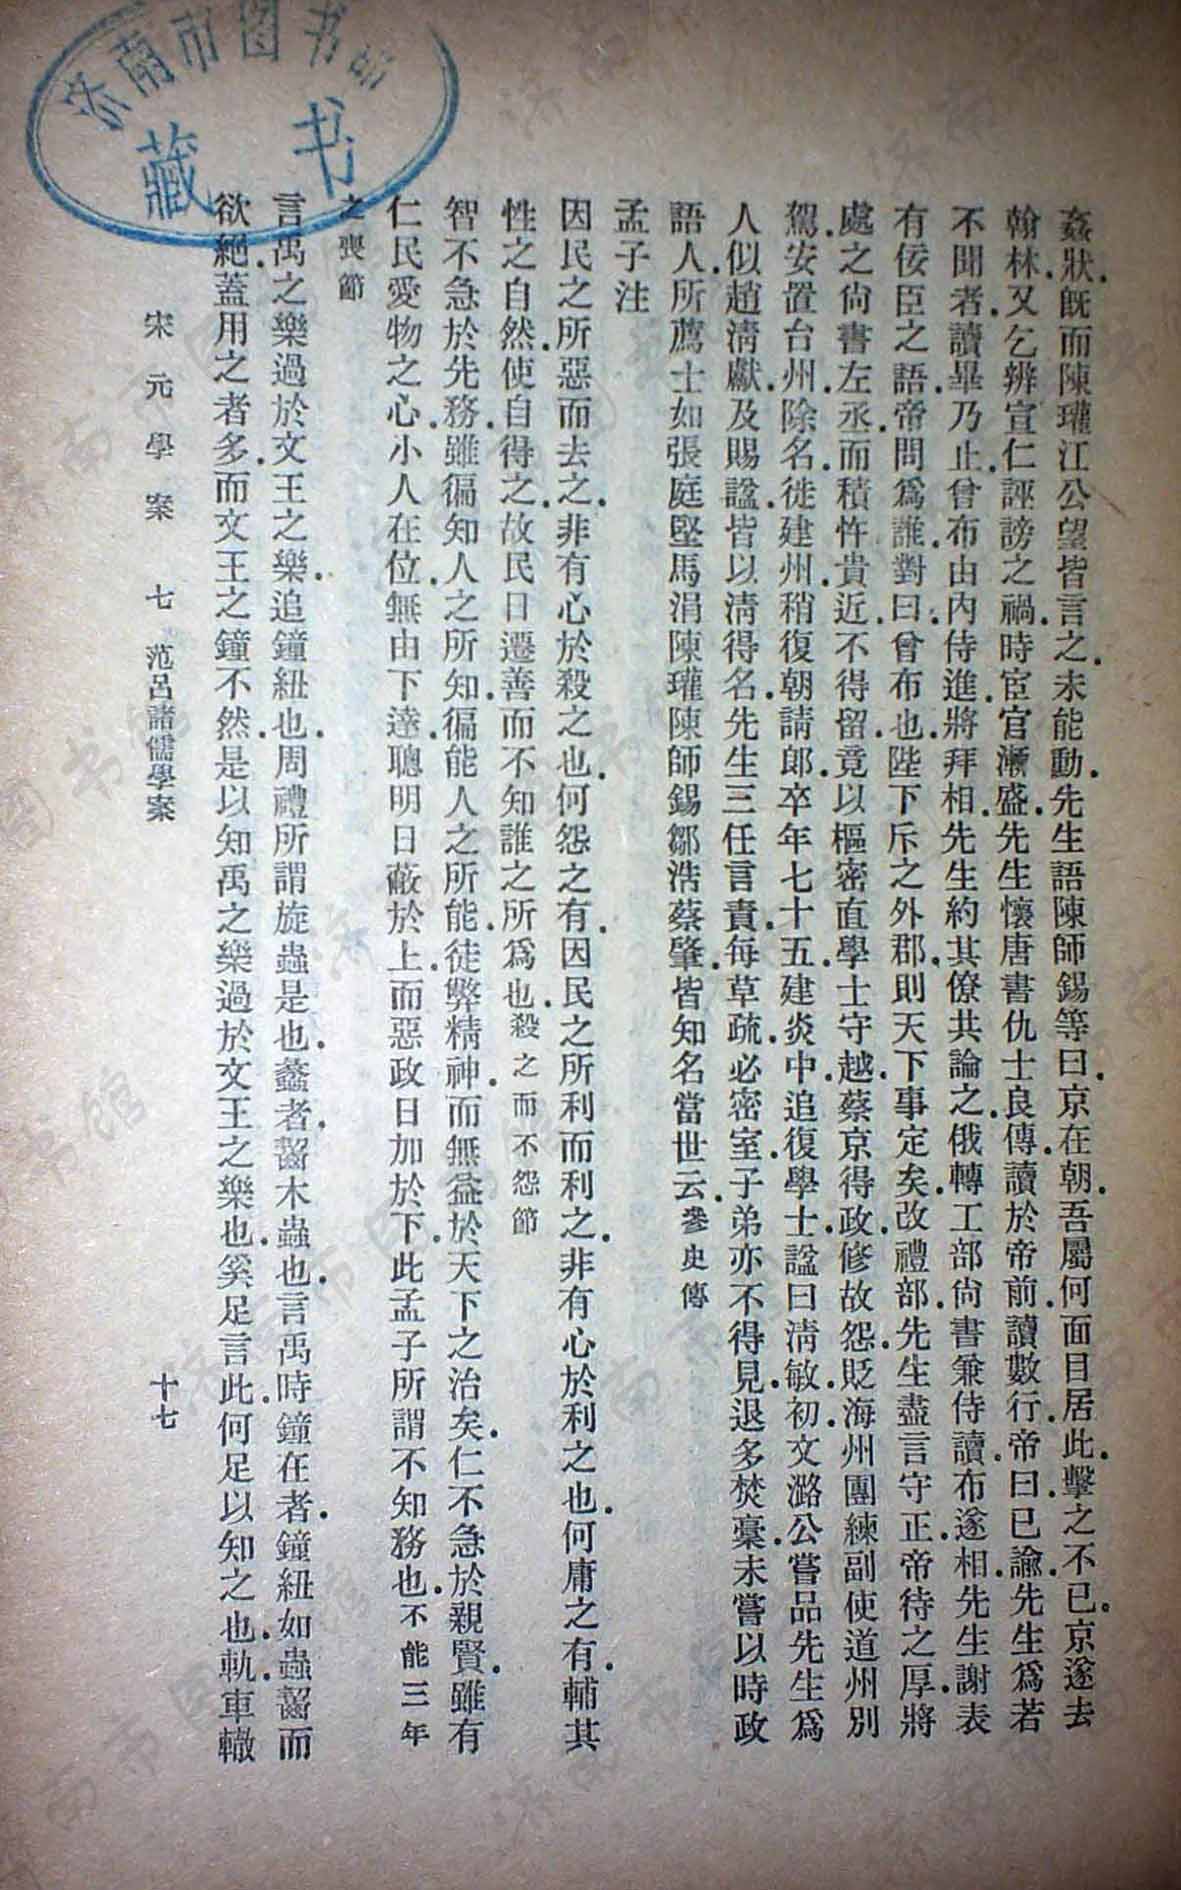 济南市图书馆
藏书
姦狀.既而陳瓘江公望皆言之.未能動.先生語陳師錫等曰.京在朝.吾屬何面目居此.擊之不已。京遂去
翰林.又乞辨宣仁誣謗之禍.時宦官漸盛.先生懷唐書仇士良傳讀於帝前.讀數行.帝曰.已諭.先生爲若
不聞者.讀畢乃止.曾布由內侍進.將拜相.先生約其僚共論之.俄轉工部尙書兼侍讀.布遂相.先生謝表
有佞臣之語.帝問爲誰.對曰.曾布也.陛下斥之外郡.則天下事定矣.改禮部.先生盡言守正.帝待之厚.將
處之尙書左丞.而積忤貴近.不得留.竟以樞密直學士守越.蔡京得政.修故怨.貶海州團練副使道州別
駕.安置台州.除名.徙建州.稍復朝請郎.卒年七十五.建炎中.追復學士.諡曰淸敏.初文潞公嘗品先生爲
人似趙淸獻.及賜諡.皆以淸得名.先生三任言責.每草疏.必密室.子弟亦不得見.退多焚稾.未嘗以時政
語人.所薦士如張庭堅馬涓陳瓘陳師錫鄒浩蔡肇.皆知名當世云.參史傳
孟子注
因民之所惡而去之.非有心於殺之也.何怨之有.因民之所利而利之.非有心於利之也.何庸之有.輔其
性之自然.使自得之.故民日遷善而不知誰之所爲也.殺之而不怨節
智不急於先務.雖徧知人之所知.徧能人之所能.徒弊精神.而無益於天下之治矣.仁不急於親賢.雖有
仁民愛物之心.小人在位.無由下達.聰明日蔽於上.而惡政日加於下.此孟子所謂不知務也.不能三年
之喪節
言禹之樂過於文王之樂.追.鐘紐也.周禮所謂旋蟲是也.蠡者.齧木蟲也.言禹時鐘在者.鐘紐如蟲齧而
欲絕.蓋用之者多.而文王之鐘不然.是以知禹之樂過於文王之樂也.奚足言此.何足以知之也.軌.車轍
宋元學案 七 范呂諸儒學案 十七